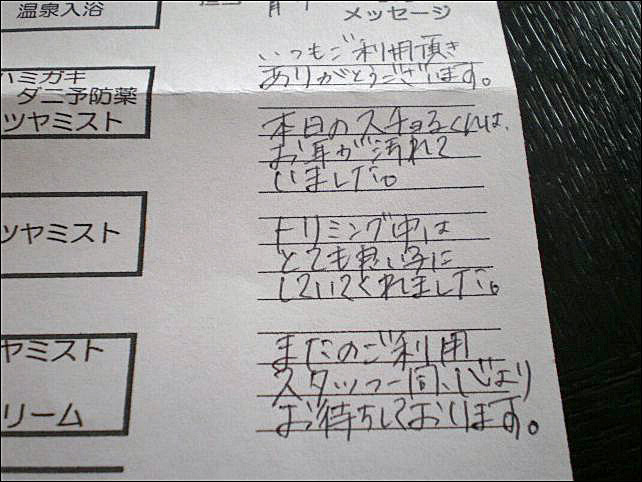 温泉入浴
メッセージ
いつもご利用頂き
ありがとうございます。
ハミガキ
ダニ予防薬
ツヤミスト
本日のスチョるくんは、
お耳が汚れて
いました。
ツヤミスト
トリミング中は
とても良い子に
していてくれました。
ヤミスト
リーム
またのご利用
スタッフ一同心より
お待ちしております。